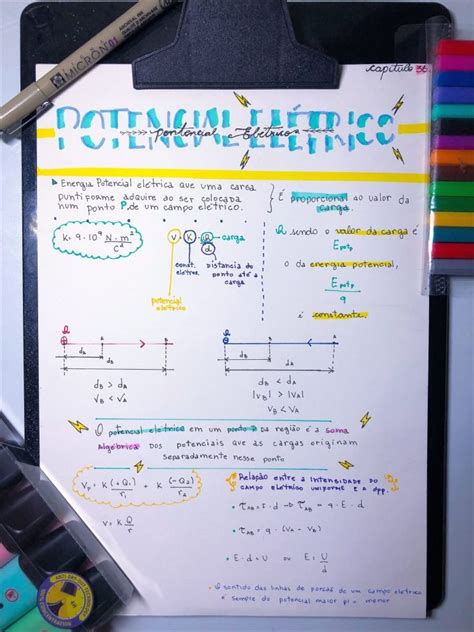 MICRON 01
Capítulo 36
POTENCIAL ELÉTRICO
>>>>> Pontencial elétrico >>>>>
Energia Potencial elétrica que uma carga
puntiforme adquire ao ser colocada
num ponto P de um campo elétrico.
É proporcional ao valor da
carga.
K = 9·10⁹ N·m²/C²
V = K·Q/d
carga
const. eletros.
distancia do
ponto até a
carga
potencial
elétrico
Q sendo o valor da carga é
E potp
o da energia potencial,
E potp/q
é constante.
Q ⊕ A B
dA
dB
dB > dA
VB < VA
Q A
dB
dA
dB < dA
|VB| > |VA|
VB < VA
O potencial elétrico em um ponto P da região é a soma
algébrica dos potenciais que as cargas originam
separadamente nesse ponto
Vp = K (+Q₁)/r₁ + K (-Q₂)/r₂
V = K Q/r
Relação entre a intensidade do
campo elétrico uniforme e a dpp.
• τAB = F·d → τAB = q·E·d
• τAB = q·(VA - VB)
• E·d = U ou E = U/d
O sentido das linhas de forcas de um campo elétrico
é sempre do potencial maior p/ o menor